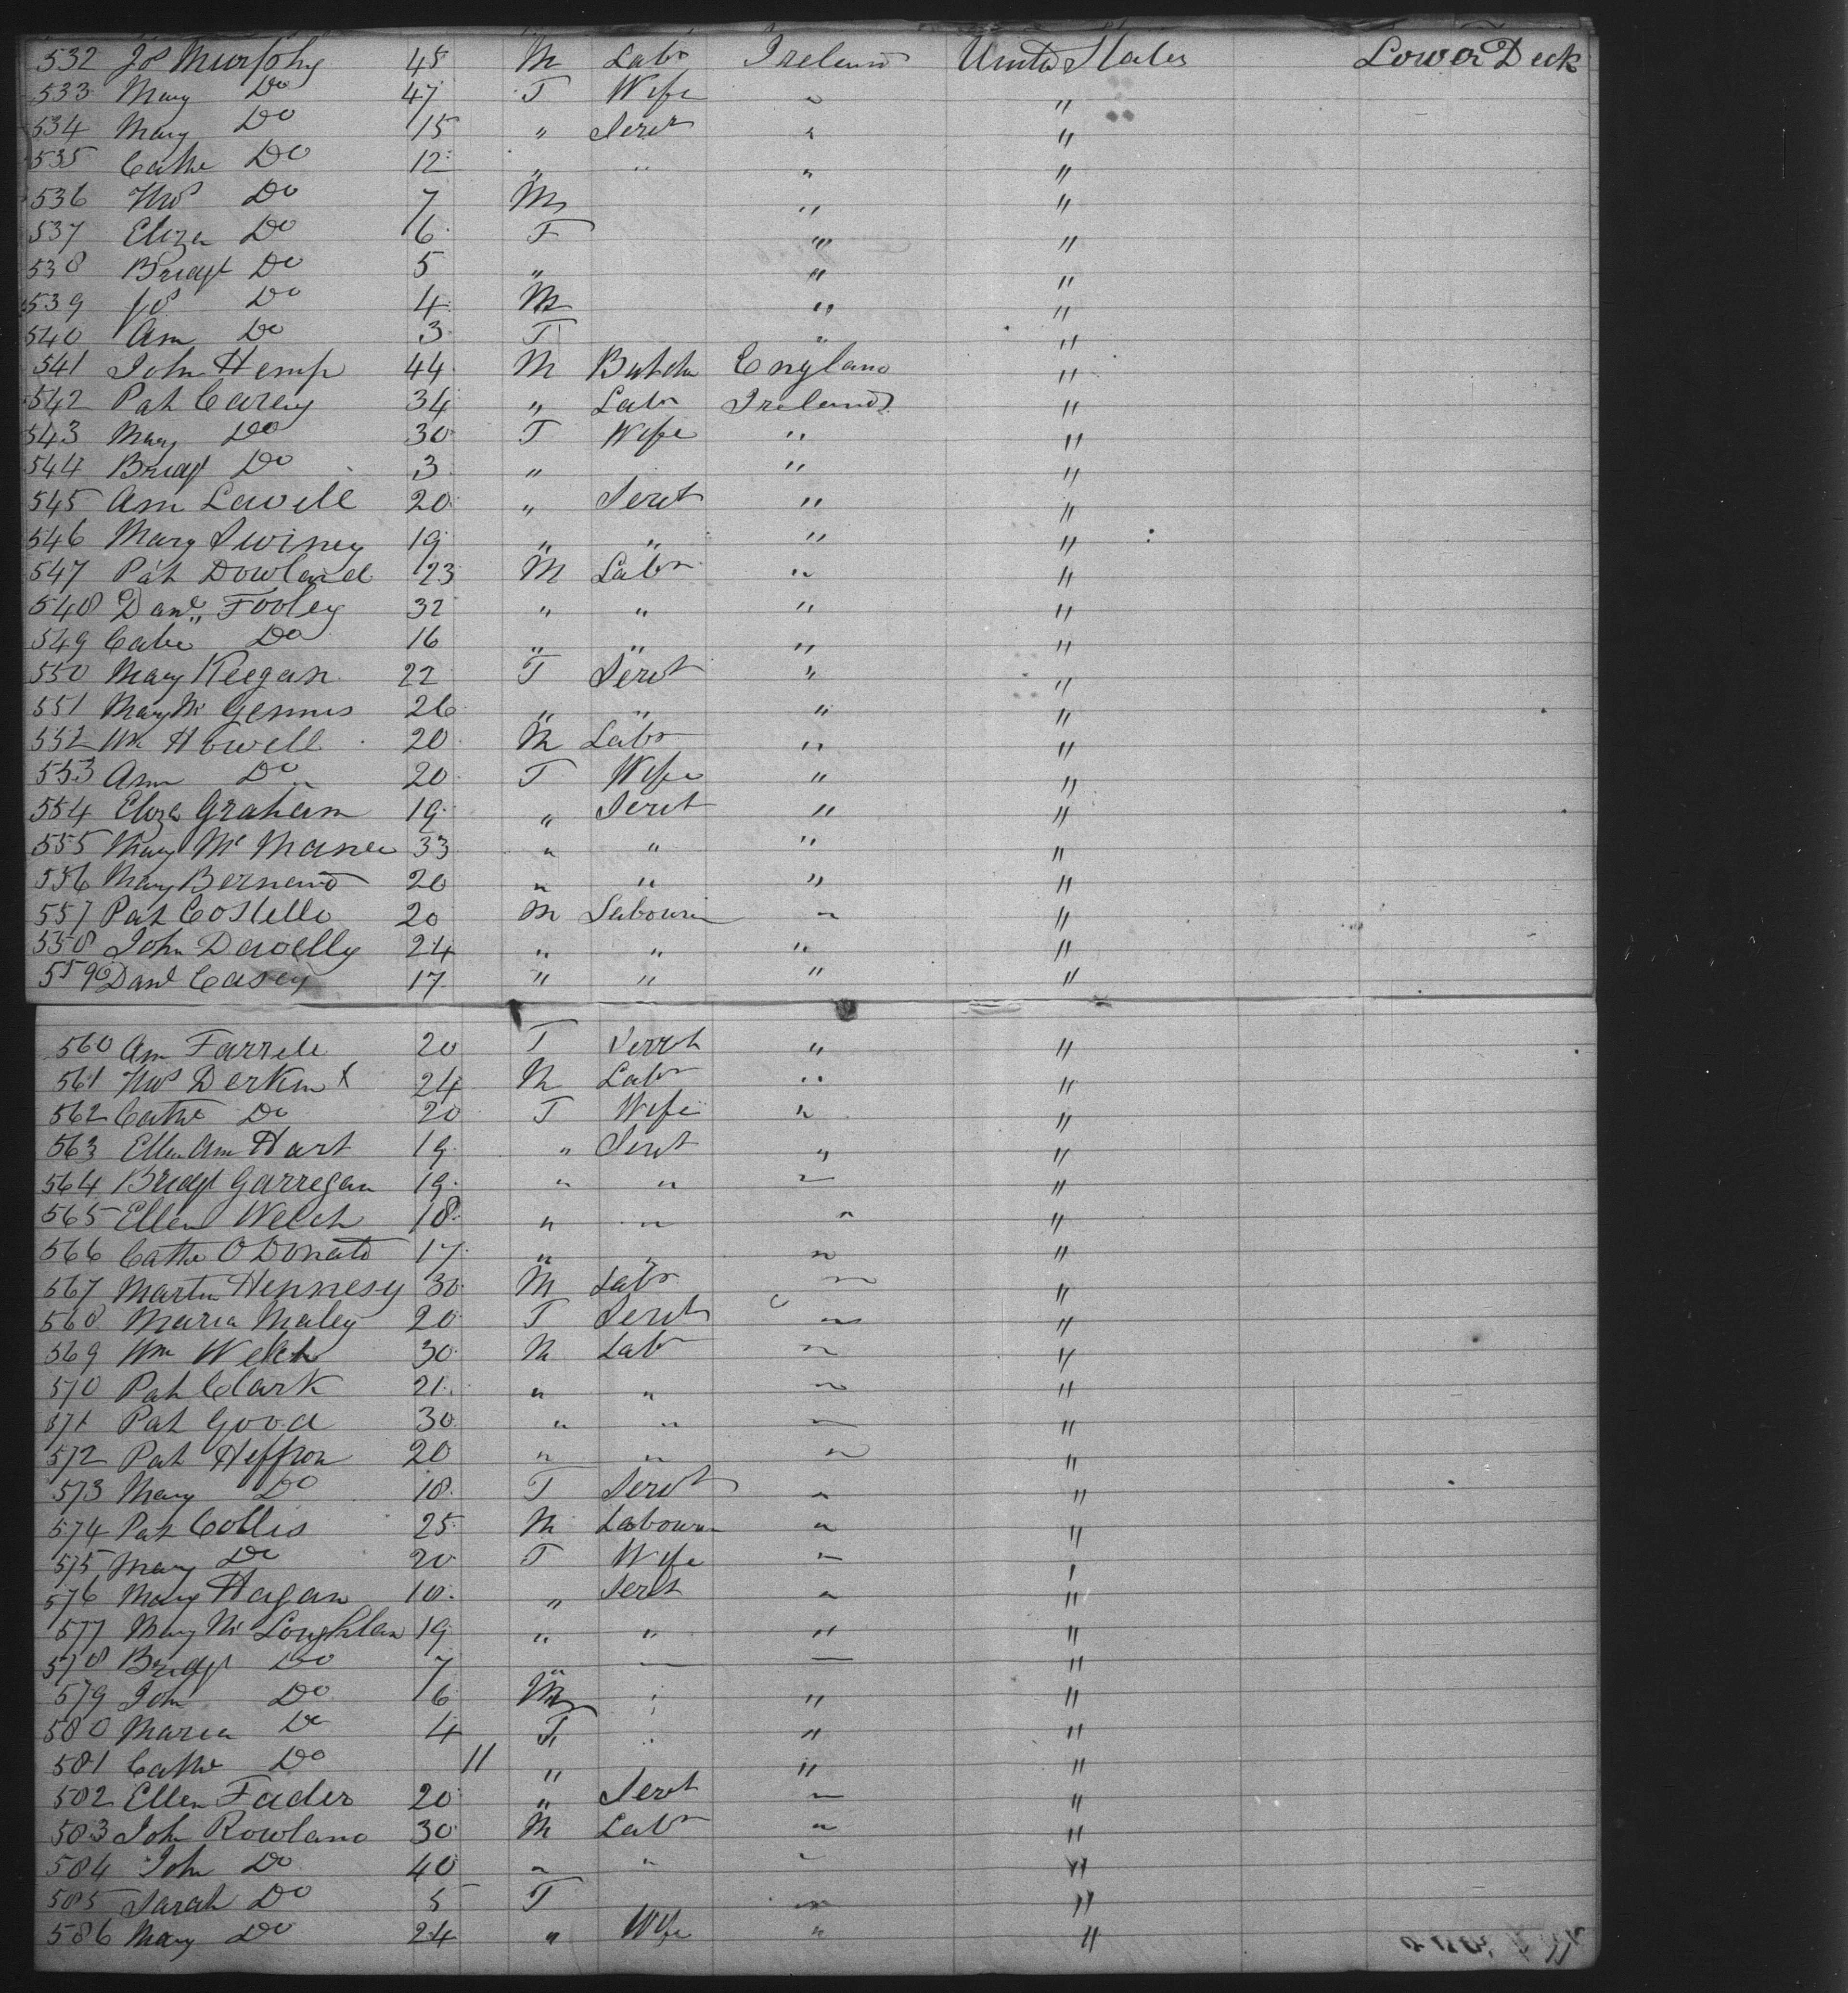 532 Jos Murphy 45 M Labr Ireland United States Lower Deck
533 Mary Do 47 F Wife " "
534 Mary Do 15 " Servt " "
535 Cathe Do 12 " " " "
536 Thos Do 7 M " "
537 Eliza Do 6 F " "
538 Bridgt Do 5 " " "
539 Jos Do 4 M " "
540 Ann Do 3 F " "
541 John Hemp 44 M Butcher England "
542 Pat Carey 34 " Labr Ireland "
543 Mary Do 30 F Wife " "
544 Bridgt Do 3 " " "
545 Ann Lavell 20 " Servt " "
546 Mary Swiney 19 " " " "
547 Pat Dowland 23 M Labr " "
548 Danl Fooley 32 " " " "
549 Do 16 " " " "
550 Mary Keegan 22 F Servt " "
551 Mary Mc Gennis 26 " " " "
552 Wm Howell 20 M Labr " "
553 Ann Do 20 F Wife " "
554 Eliza Graham 19 " Servt " "
555 Mary Mc Manee 33 " " " "
556 Mary Bernard 20 " " " "
557 Pat Costello 20 M Labourer " "
558 John Davelly 24 " " " "
559 Danl Casey 17 " " " "
560 Ann Farrell 20 F Servt " "
561 Thos Derkin X 24 M Labr " "
562 Cathe Do 20 F Wife " "
563 Ellen Ann Hart 19 " Servt " "
564 Bridgt Garregan 19 " " " "
565 Ellen Welch 18 " " " "
566 Cathe O Donald 17 " " " "
567 Martin Hennesy 30 M Labr " "
568 Maria Maley 20 F Servt " "
569 Wm Welch 30 M Labr " "
570 Pat Clark 21 " " " "
571 Pat Good 30 " " " "
572 Pat Heffron 20 " " " "
573 Mary Do 18 F Servt " "
574 Pat Collis 25 M Labourer " "
575 Mary Do 20 F Wife " "
576 Mary Hagan 18 " Servt " "
577 Mary Mc Loughlan 19 " " " "
578 Bridgt Do 7 " " " "
579 John Do 6 M " "
580 Maria Do 4 F " "
581 Cathe Do 11 " " "
582 Ellen Fader 20 " Servt " "
583 John Rowland 30 M Labr " "
584 John Do 40 " " " "
585 Sarah Do 5 F " "
586 Mary Do 24 " Wife " "